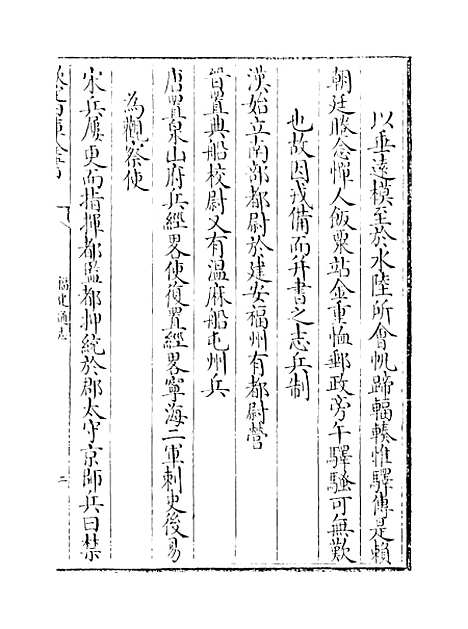 以垂遠模至於水陸所會帆蹄輻輳惟驛傳是賴
朝廷睠念憚人飯粟站金重恤郵政旁午驛騷可無歎
也故因戎備而并書之志兵制
漢始立南部都尉於建安福州有都尉營
晉置典船校尉又有溫麻船屯州兵
唐置泉山府兵經畧使復置經畧寧海二軍刺史後易
為觀察使
宋兵屢更而指揮都監都抑統於郡太守京師兵曰禁
福建通志
二